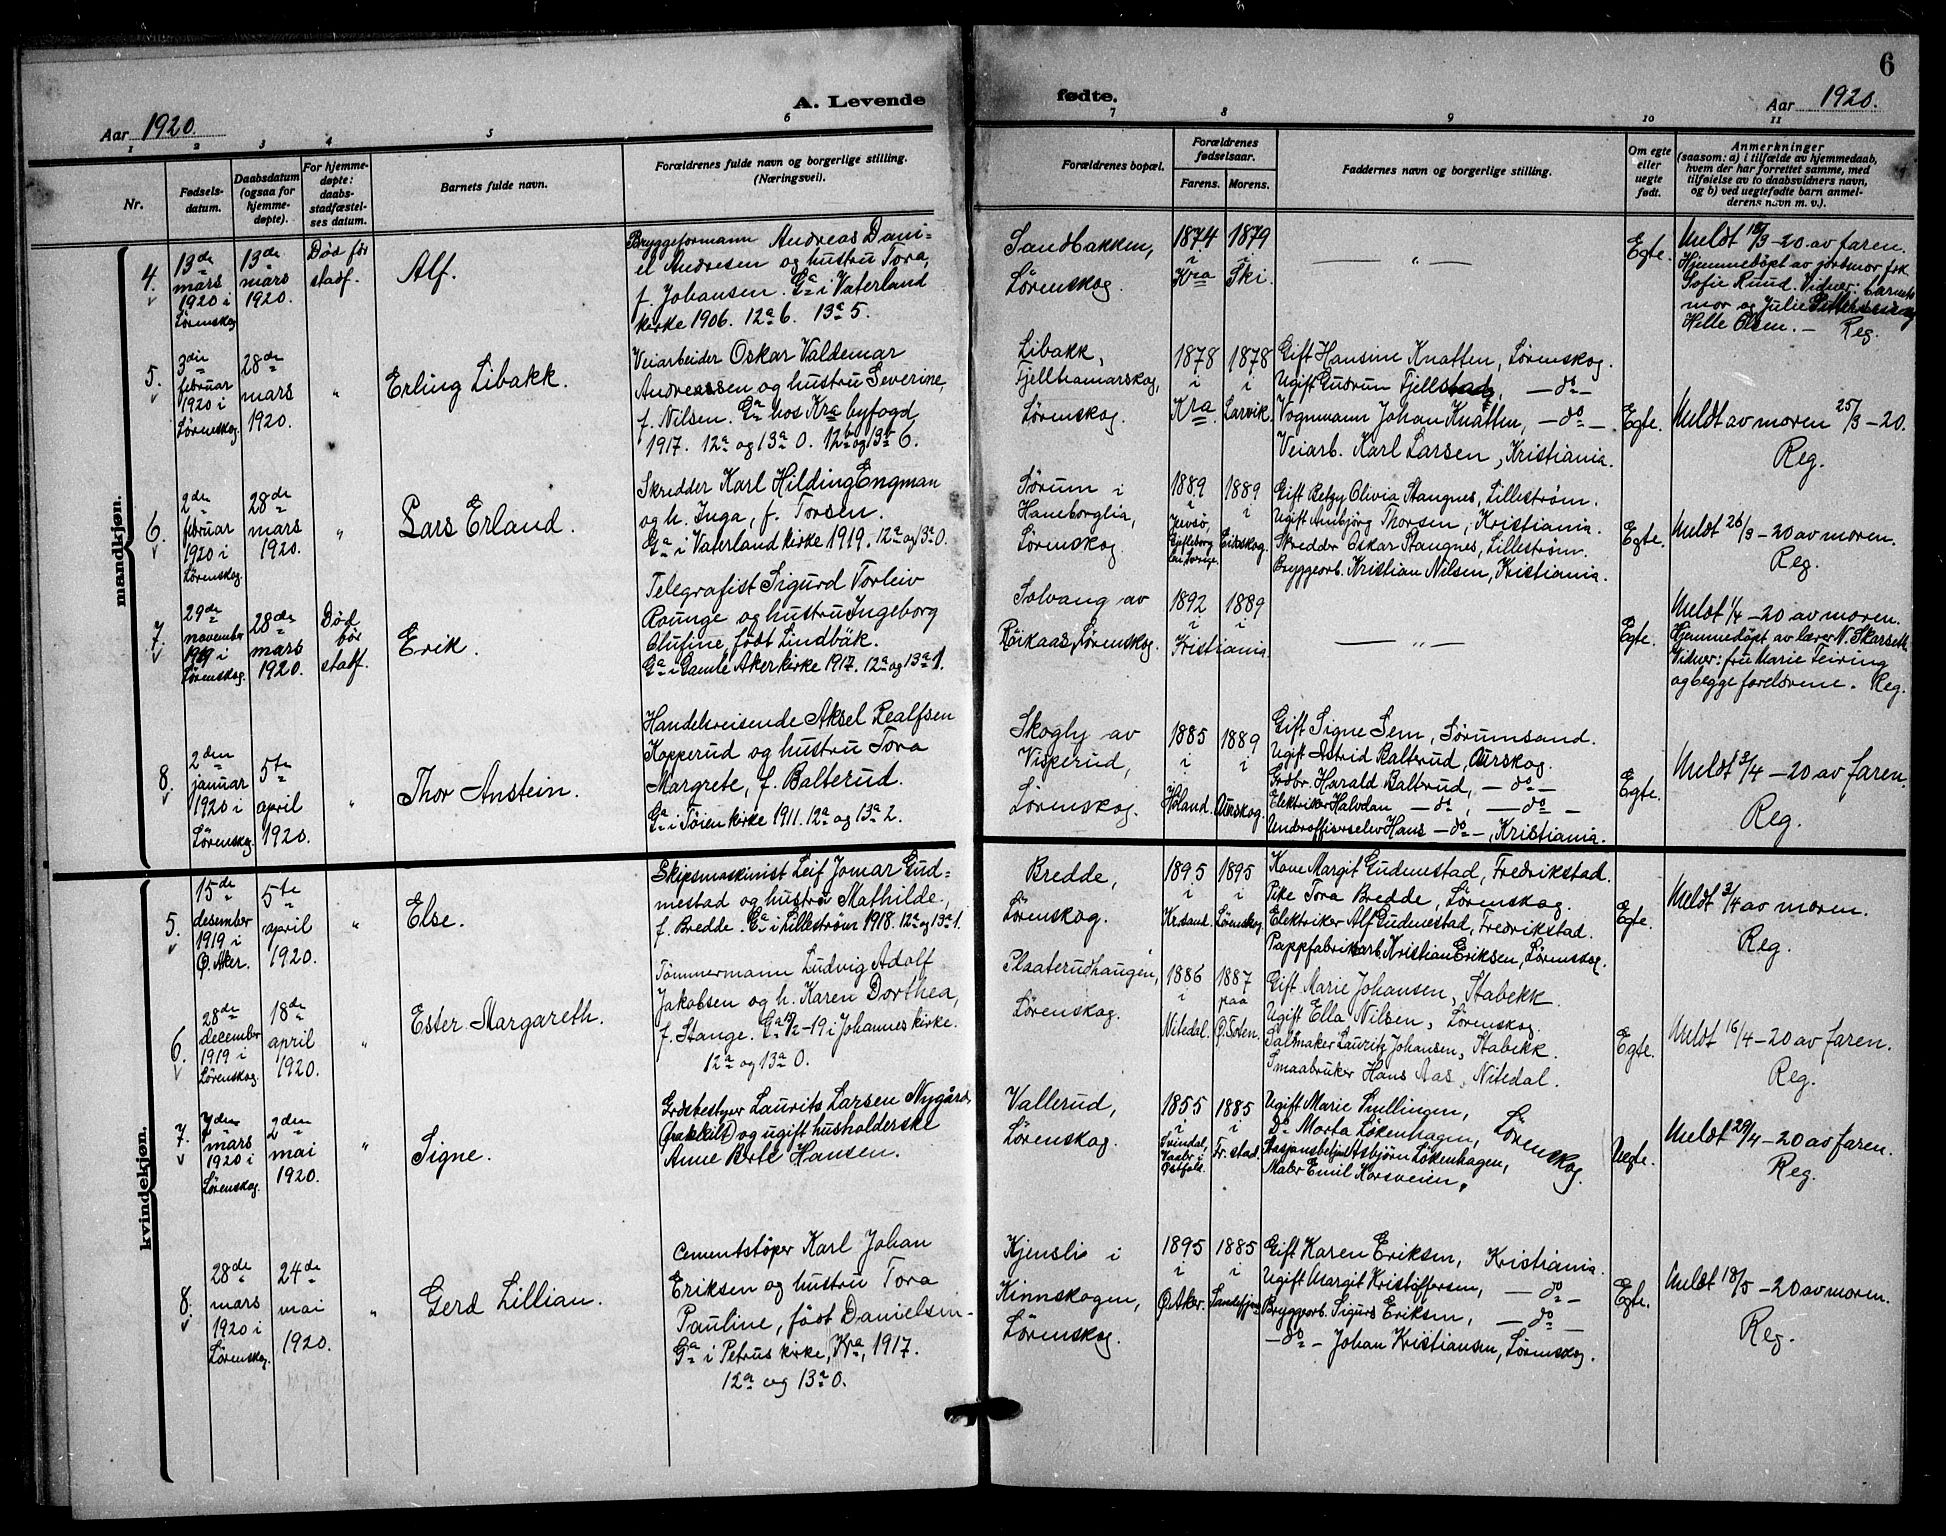 A. Levende
fødte.
6
Aar 1920.
Aar 1920.
1 2 3 4 5 6
7 8 9 10 11
Nr.
Fødsels-
datum.
Daabsdatum
(ogsaa for
hjemme-
døpte).
For hjemme-
døpte:
daabs
stadfæstel-
ses datum.
Barnets fulde navn.
Forældrenes fulde navn og borgerlige stilling.
(Næringsvei).
Forældrenes bopæl.
Forældrenes
fødselsaar.
Farens.
Morens.
Faddernes navn og borgerlige stilling.
Om egte
eller
uegte
født.
Anmerkninger
(saasom: a) i tilfælde av hjemmedaab,
hvem der har forrettet samme, med
tilføielse av to daabsvidners navn,
og b) ved uegtefødte barn anmel-
derens navn m. v.).
mandkjøn.
4.
13de
mars
1920 i
Lørenskog
13de
mars
1920.
Død før
stadf.
Alf.
Bryggeformann Andreas Dani-
el Andresen og hustru Tora,
f. Johansen. Ga i Vaterland
kirke 1906. 12a 6. 13a 5.
Sandbakken,
Lørenskog.
1874
i
Kra
1879
i
Ski.
— „ —
Egte.
Meldt 18/3 – 20 av faren.
Hjemmedøpt av jordmor frk.
Sofie Ruud. Vidner: barnets
mor og Julie
Helle Olsen. — Reg.
5.
3die
februar
1920 i
Lørenskog.
28de
mars
1920.
„
Erling Libakk.
Veiarbeider Oskar Valdemar
Andreassen og hustru Severine,
f. Nilsen. Ga hos Kra byfogd
1917. 12a og 13a 0. 12b og 13b 6.
Libakk,
Fjellhamarskog,
Lørenskog.
1878
i
Kra.
1878
i
Larvik.
Gift Hansine Knatten, Lørenskog.
Ugift Gudrun Fjellstad, — do —
Vognmann Johan Knatten, — do —
Veiarb. Karl Larsen, Kristiania.
Egte.
Meldt av moren 25/3 – 20.
Reg.
6.
2de
februar
1920 i
Lørenskog.
28de
mars
1920.
„
Lars Erland.
Skredder Karl Hilding Engman
og h. Inga, f. Torsen.
Ga i Vaterland kirke 1919. 12a og 13a 0.
Sørum i
Haneborglia,
Lørenskog.
1889
i
1889
i
Eidskog.
Gift Betzy Olivia Stangnes, Lillestrøm.
Ugift Anbjørg Thorsen, Kristiania.
Skredder Oskar Stangnes, Lillestrøm.
Bryggearb. Kristian Nilsen, Kristiania.
Egte.
Meldt 26/3 – 20 av moren.
Reg.
7.
29de
november
1919 i
Lørenskog.
28de
mars
1920.
Død
før
stadf.
Erik.
Telegrafist Sigurd Torleiv
Rounge og hustru Ingeborg
Olufine, født Lindbäk.
Ga i Gamle Aker kirke 1917. 12a og 13a 1.
Solvang av
Røikaas, Lørenskog.
1892
i
1889
i
Kristiania.
— „ —
Egte.
Meldt 1/4 – 20 av moren.
Hjemmedøpt av lærer N. Skarseth.
Vidner: fru Marie Teiring
og begge foreldrene. Reg.
8.
2den
januar
1920 i
Lørenskog
5te
april
1920.
„
Thor Anstein.
Handelsreisende Aksel Realfsen
Kopperud og hustru Tora
Margrete, f. Balterud.
Ga i Tøien kirke 1911. 12a og 13a 2.
Skogly av
Visperud,
Lørenskog.
1885
i
Høland.
1889
i
Aurskog.
Gift Signe Sem, Sørumsand.
Ugift Astrid Balterud, Aurskog.
Grdbr. Harald Baltrud, — do —
Elektriker Halvdan — do —, — do —
Underoffiserselev Hans — do —, Kristiania.
Egte.
Meldt 3/4 – 20 av faren.
Reg.
kvindekjøn.
5.
15de
desember
1919 i
Ø. Aker.
5te
april
1920.
„
Else.
Skipsmaskinist Leif Jomar Gud-
mestad og hustru Mathilde,
f. Bredde. Ga i Lillestrøm 1918. 12a og 13a 1.
Bredde,
Lørenskog.
1895
i
Kr.sand.
1895
i
Lørenskog.
Kone Margit Gudmestad, Fredrikstad.
Pike Tora Bredde, Lørenskog.
Elektriker Alf Gudmestad, Fredrikstad.
Pappfabrikarb. Kristian Eriksen, Lørenskog.
Egte.
Meldt 3/4 av moren.
Reg.
6.
28de
december
1919 i
Lørenskog.
18de
april
1920.
„
Ester Margareth.
Tømmermann Ludvig Adolf
Jakobsen og h. Karen Dorthea,
f. Stange. Ga /2–19 i Johannes kirke.
12a og 13a 0.
Plaaterudhaugen,
Lørenskog.
1886
i
Nitedal.
1887
paa
Ø. Toten.
Gift Marie Johansen, Stabekk.
Ugift Ella Nilsen, Lørenskog.
Salmaker Lauritz Johansen, Stabekk.
Smaabruker Hans Aas, Nitedal.
Egte.
Meldt 16/4 – 20 av faren.
Reg.
7.
7den
mars
1920 i
Lørenskog.
2den
mai
1920.
„
Signe.
Grdsbestyrer Laurits Larsen Nygård,
(frakkilt) og ugift husholderske
Anne Berte Hansen.
Vallerud,
Lørenskog.
1855
i
Svindal,
Vaaler i
Østfold.
1885
i
Fr.stad.
Ugift Marie Snellingen,
Do Marta Løkenhagen,
Stasjonsbetjent Asbjørn Løkenhagen,
Maler Emil Korsveien,
Lørenskog.
Uegte.
Meldt 29/4 – 20 av faren.
Reg.
8.
28de
mars
1920 i
Lørenskog.
24de
mai
1920.
„
Gerd Lillian.
Cementstøper Karl Johan
Eriksen og hustru Tora
Pauline, født Danielsen.
Ga i Petrus kirke, Kra, 1917.
12a og 13a 0.
Kjensli i
Kinnskogen,
Lørenskog.
1895
i
Ø. Aker.
1885
i
Sandefjord
Gift Karen Eriksen, Kristiania.
Ugift Margit Kristoffersen, — do —
Bryggearb. Sigurd Eriksen, — do —
— do — Johan Kristiansen, Lørenskog.
Egte.
Meldt 18/5 – 20 av moren.
Reg.